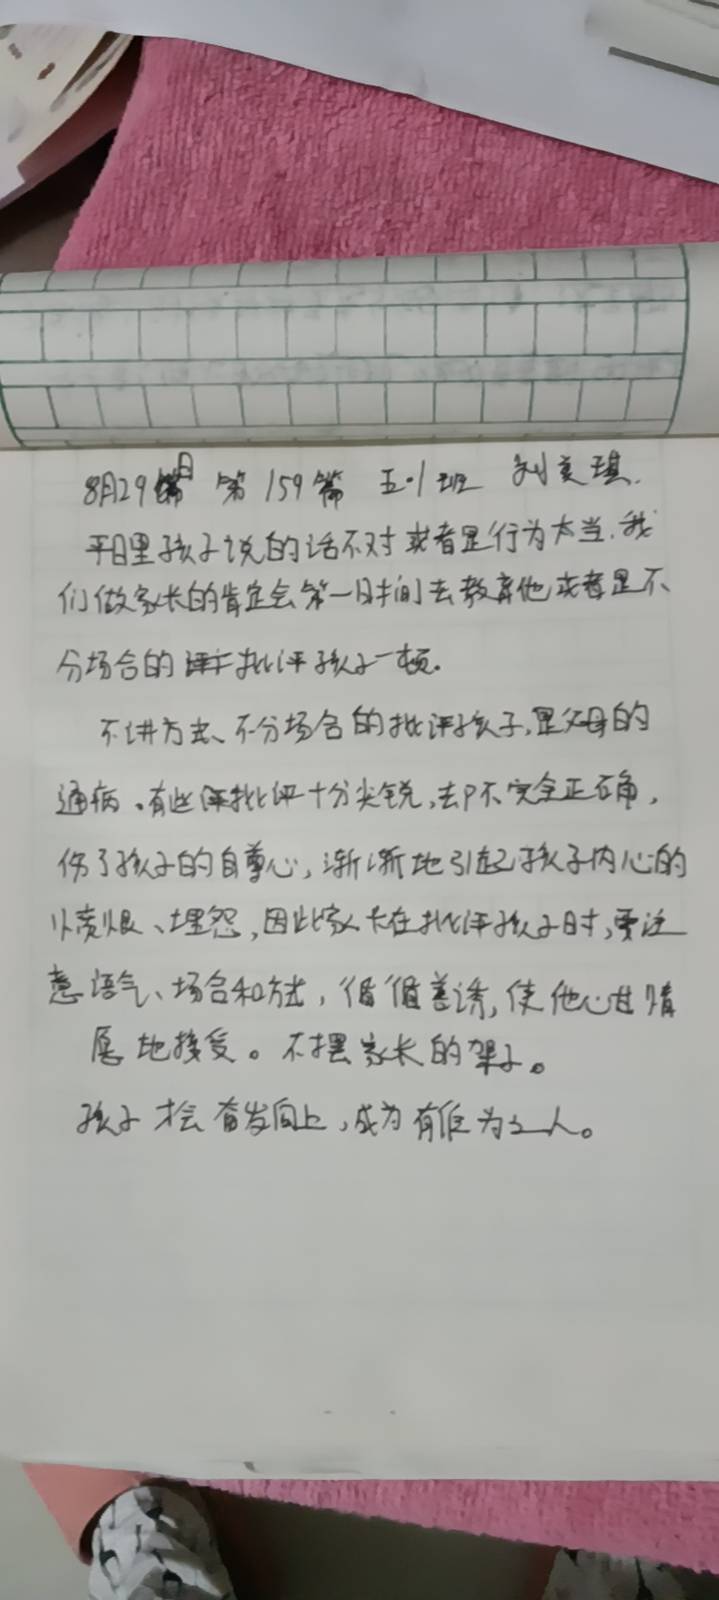 8月29日 第159篇 五.1班 刘美琪.
平日里孩子说的话不对或者是行为不当.我
们做家长的肯定会第一时间去教育他或者是不
分场合的批评孩子一顿。
不讲方式、不分场合的批评孩子,是父母的
通病。有些批评十分尖锐,却不完全正确,
伤了孩子的自尊心,渐渐地引起孩子内心的
愤恨、埋怨,因此家长在批评孩子时,要注
意语气、场合和方式,循循善诱,使他心甘情
愿地接受。不摆家长的架子。
孩子才会奋发向上,成为有作为之人。